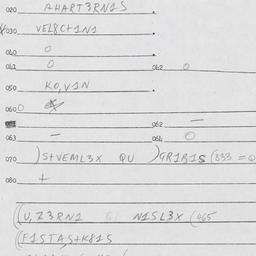 020 RHART3RN1S
030 VEL8C+1N1
040 0
041 0 042 0
050 KO,V1N
060
062 —
063 — 064 0
070 )S+VEML3X QU )GR1B1S (833 = 0
080 +
(U,Z3RN1 N1SL3X (465
(F1STA,S+K81S